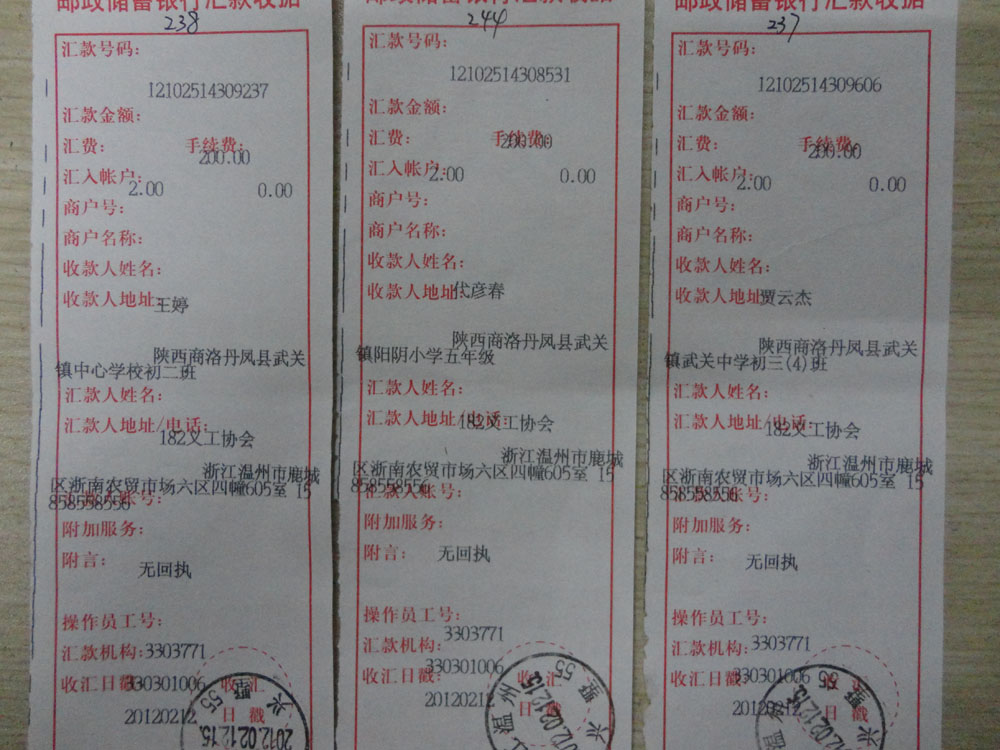 邮政储蓄银行汇款收据
238
汇款号码:
12102514309237
汇款金额:
汇费: 手续费:
200.00
汇入帐户:
2.00 0.00
商户号:
商户名称:
收款人姓名:
收款人地址:
王婷
陕西商洛丹凤县武关
镇中心学校初二班
汇款人姓名:
汇款人地址/电话:
182义工协会
浙江温州市鹿城
区浙南农贸市场六区四幢605室 15
858558556
汇入账号:
附加服务:
附言:
无回执
操作员工号:
汇款机构:3303771
收汇日戳:
330301006 收汇
日戳
20120212
2012.02.12.15
邮政储蓄银行汇款收据
244
汇款号码:
12102514308531
汇款金额:
汇费: 手续费:
200.00
汇入帐户:
2.00 0.00
商户号:
商户名称:
收款人姓名:
收款人地址:
代彦春
陕西商洛丹凤县武关
镇阳阴小学五年级
汇款人姓名:
汇款人地址/电话:
182义工协会
浙江温州市鹿城
区浙南农贸市场六区四幢605室 15
858558556
汇入账号:
附加服务:
附言:
无回执
操作员工号:
3303771
汇款机构:
330301006
收汇日戳: 收汇
20120212 日戳
温州
2012.02.12.15
邮政储蓄银行汇款收据
237
汇款号码:
12102514309606
汇款金额:
汇费: 手续费:
200.00
汇入帐户:
2.00 0.00
商户号:
商户名称:
收款人姓名:
收款人地址:
贾云杰
陕西商洛丹凤县武关
镇武关中学初三(4)班
汇款人姓名:
汇款人地址/电话:
182义工协会
浙江温州市鹿城
区浙南农贸市场六区四幢605室 15
858558556
附加服务:
附言:
无回执
操作员工号:
3303771
汇款机构:
330301006
收汇日戳: 收汇
20120212 日戳
温州
2012.02.12.15